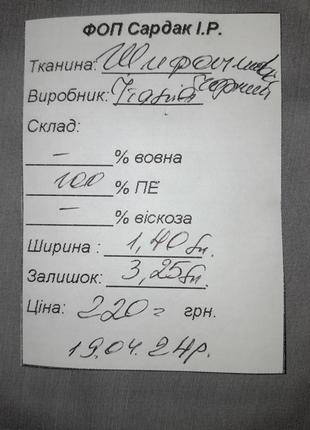 ФОП Сардак І.Р.
Тканина: Шифон
Виробник: Італія чорний
Склад:
– % вовна
100 % ПЕ
– % віскоза
Ширина : 1,40
Залишок: 3,25
Ціна: 220 = грн.
19.04.24р.